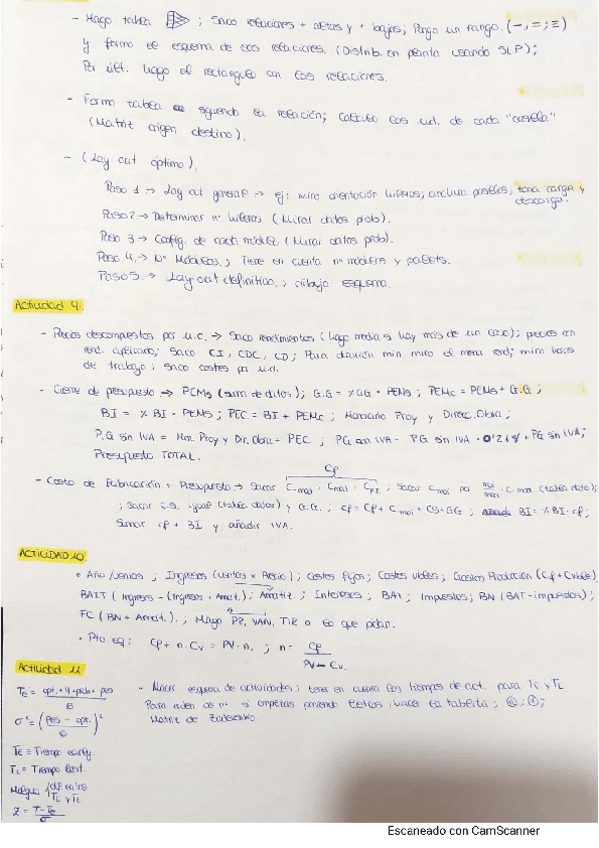 - Hago tabla ; Saco relaciones + altas y + bajas; Pongo un rango. (-, =; ≡)
y formo el esquema de las relaciones. (Distrib. en planta usando SLP);
Por últ. hago el rectangulo con las relaciones.
- Formo tabla siguiendo la relación; calculo los ud. de cada "casilla"
(Matriz origen destino).
- (Lay out óptimo).
Paso 1 → Lay out general → ej: miro orientación hileras; anchura pasillos; zona carga y
descarga.
Paso 2 → Determinar nº hileras (Mirar datos prob).
Paso 3 → Config. de cada módulo (Mirar datos prob).
Paso 4. → Nº Módulos.; Tiene en cuenta nº módulos y palets.
Paso 5. → Lay out definitivo.; dibujo esquema.
Actividad 9.
- Precios descompuestos por u.c. → Saco rendimientos (hago media si hay más de un caso); precios en
rend. aplicado; Saco CI, CDC, CD; Para duración min miro el menor rend; miro horas
de trabajo; saco costes por u.d.
- Cierre de presupuesto → PEMs (sum de datos); G.G = %GG · PEMs; PEMc = PEMs + G.G;
BI = % BI · PEMs; PEC = BI + PEMc; Honorario Proy y Direc. Obra;
P.G sin IVA = Hon. Proy y Dir. Obra + PEC; PG con IVA = PG sin IVA · 0'21 + PG sin IVA;
Presupuesto TOTAL.
- Costo de Fabricación + Presupuesto → Sacar
Cf
; Sacar por (tabla dato);
; Sacar igual (tabla datos) y G.G.; BI = % BI · cf;
Sumar cf + BI y añadir IVA.
ACTIVIDAD 10.
• Año /ventas; Ingresos (ventas x Precio); Costes fijos; Costes vbles; Gastos Producción (Cf + Cvble);
BAIT (Ingresos - (Ingresos + Amort.); Amortiz.; Intereses; BAI; Impuestos; BN (BAT - impuestos);
FC (BN + Amort.); Hago PR, VAN, TIR o lo que pidan.
• Pto eq: Cf + n · Cv = PV · n. ; n =
Cf
PV - Cv.
Actividad 11
Te = opt. + 4 · prob + pes
6
σ² = (pes - opt.)²
6
TE = Tiempo early.
TL = Tiempo last.
Holgura dif entre
TE y TL
Z = T - Te
σ
- Hacer esquema de actividades; tener en cuenta los tiempos de act. para TE y TL
Para orden de nº si empiezas poniendo letras; hacer la tablita;
Matriz de Zaderenko.
Escaneado con CamScanner